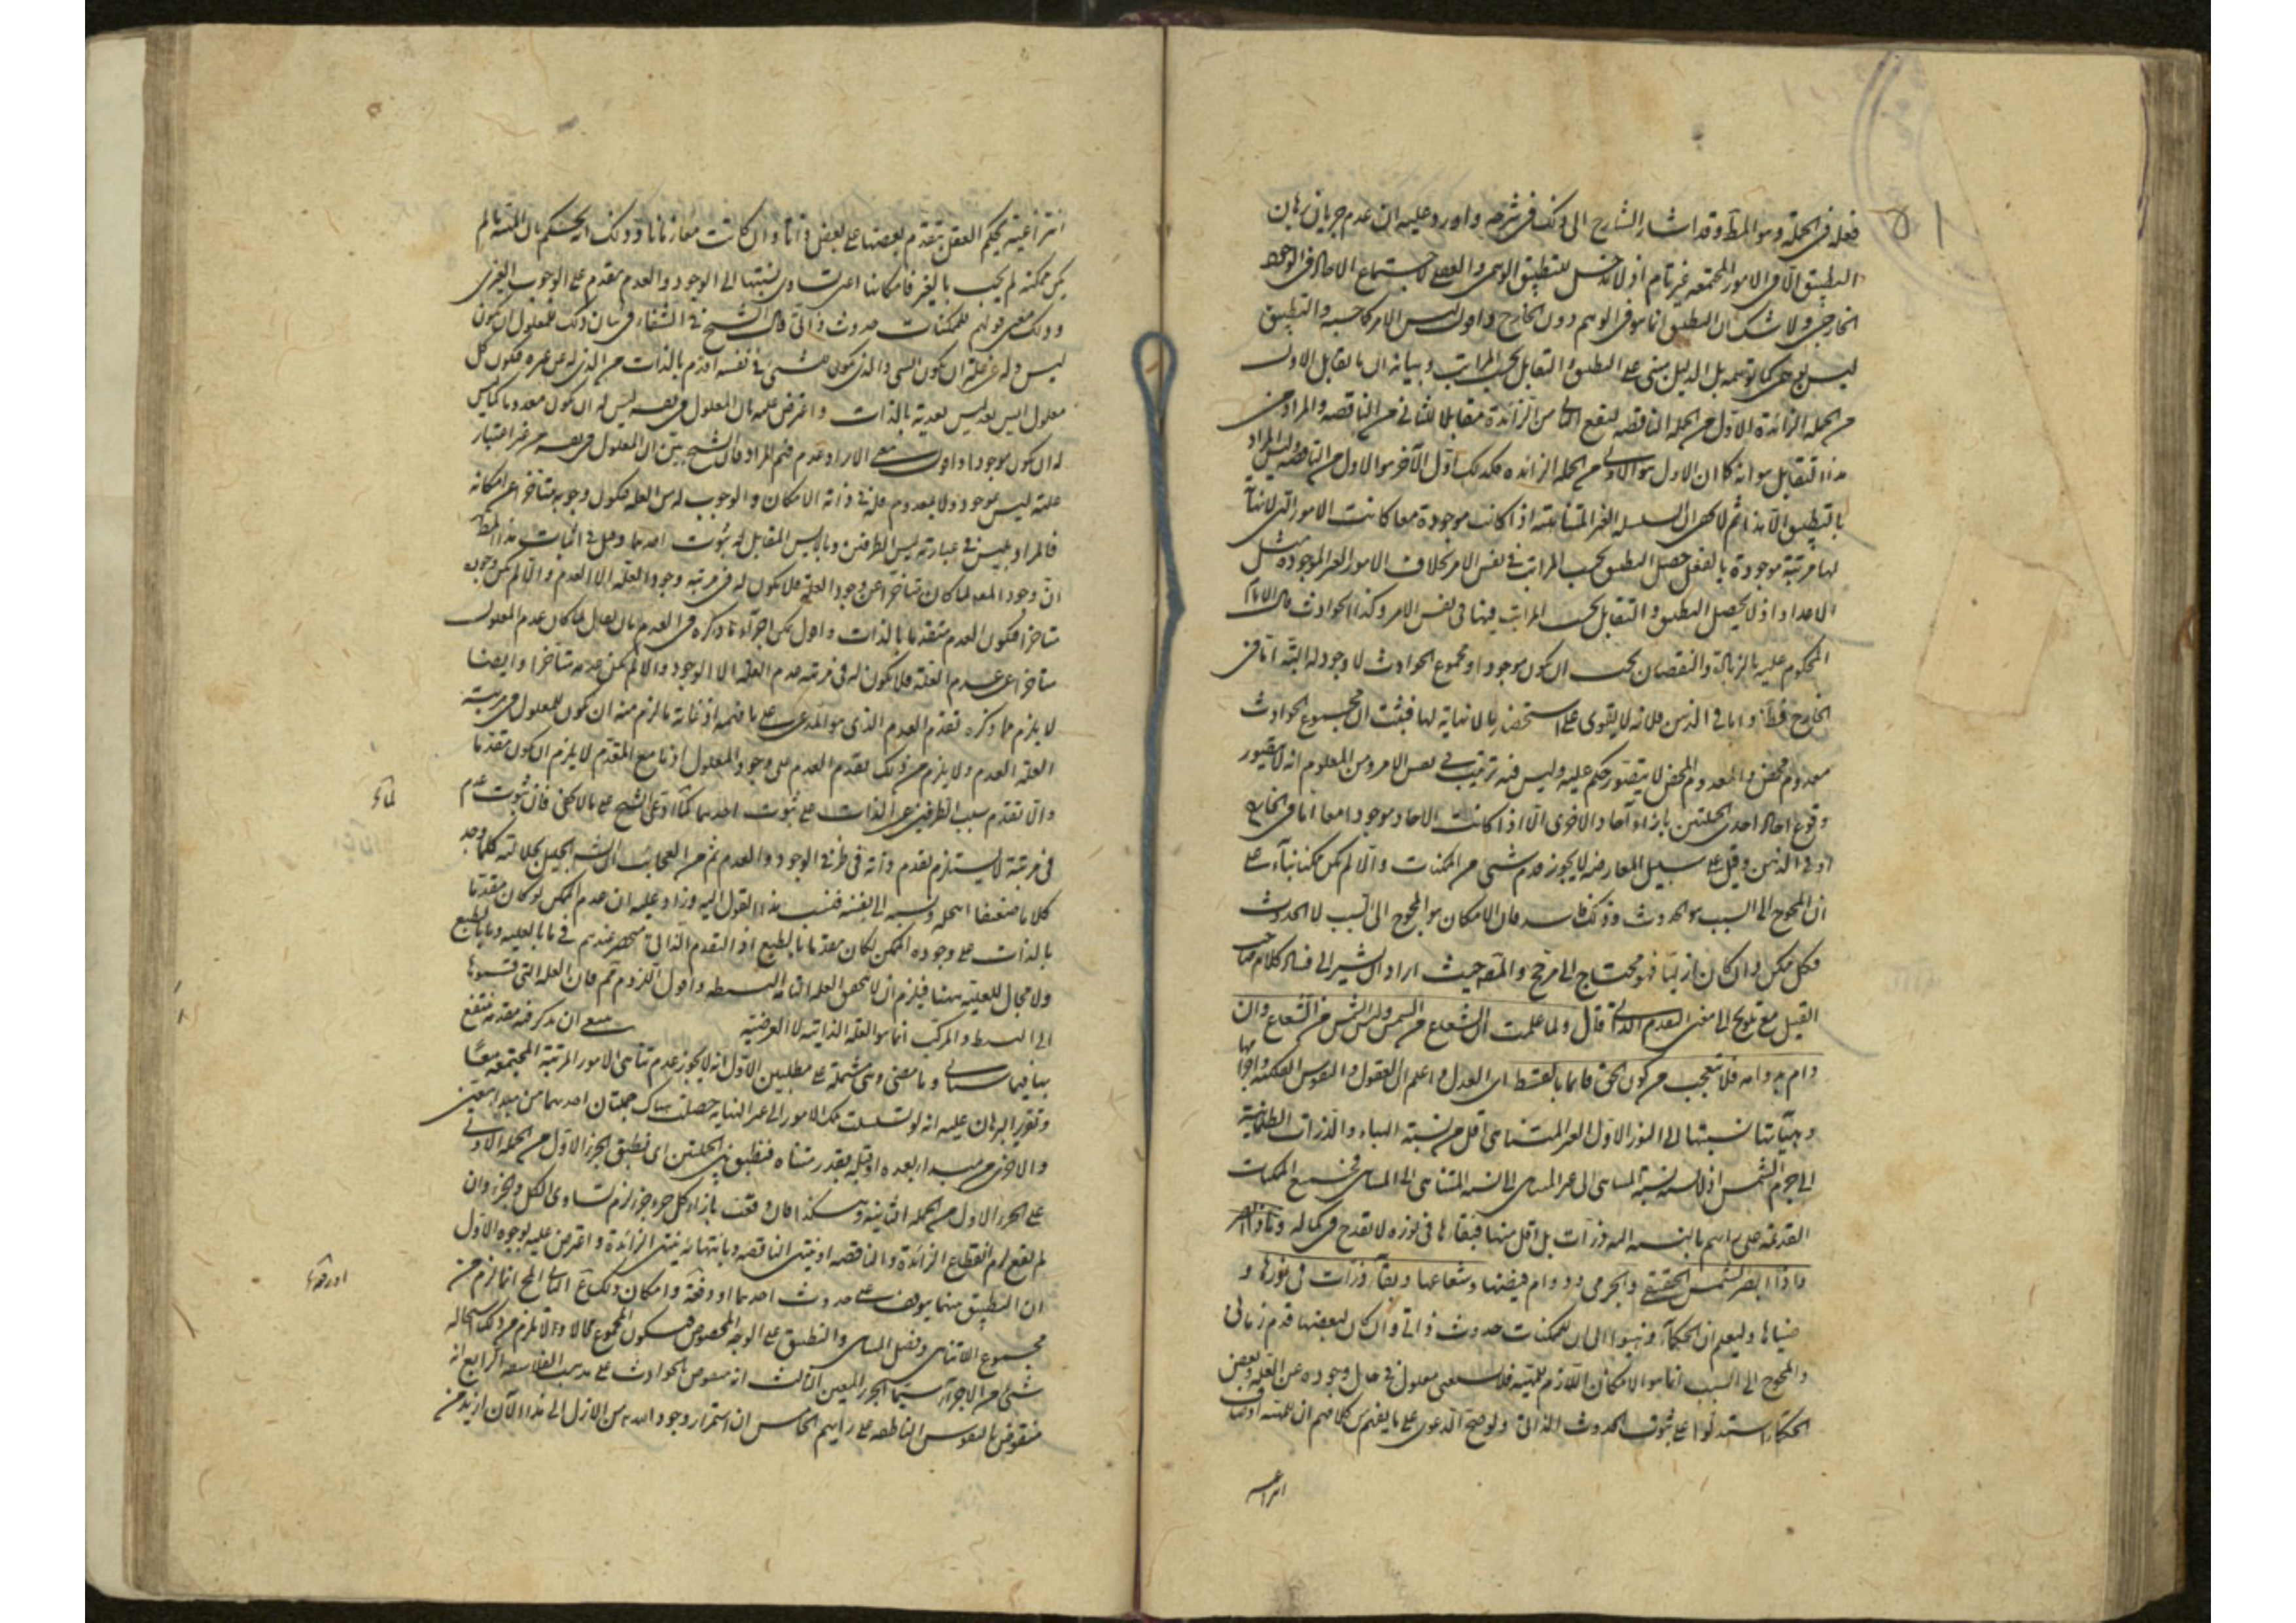 ٥١
فعله فى الجملة وهو المط وقد اشار الشارح الى ذلك فى شرحه واورد عليه ان عدم جريان برهان
التطبيق الا فى الامور المجتمعة غير تام اذ لا مدخل للتطبيق الوهمى والعقلى لاجتماع الاحاد فى الوجود
الخارجى ولا شك ان التطبيق انما هو فى الوهم دون الخارج واقول ليس الامر كما حسبه والتطبيق
ليس بوهمى كما توهمه بل الدليل مبنى على التطبيق والتقابل بحسب المراتب وبيانه ان ما يقابل الاول
من الجملة الزائدة الاول من الجملة الناقصة ليقع الثانى من الزائدة مقابلا للثانى من الناقصة والمراد من
هذا التقابل هو انه كما ان الاول هو الاول من الجملة الزائدة فكذلك اول الآخر هو الاول من الناقصة وليس المراد
بالتطبيق الا هذا ثم لا يخفى ان السلسلة الغير المتناهية اذا كانت موجودة معا كانت الامور التى لا نهاية
لها مرتبة موجودة بالفعل حصل التطبيق بحسب المراتب فى نفس الامر بخلاف الامور الغير الموجودة مثل
الاعداد اذ لا يحصل التطبيق والتقابل بحسب المراتب فيها فى نفس الامر وكذا الحوادث قال الامام
المحكوم عليه بالزيادة والنقصان يجب ان يكون موجودا ومجموع الحوادث لا وجود له البتة اما فى
الخارج فظ واما فى الذهن فلانه لا يقوى على استحضار ما لا نهاية لها فثبت ان مجموع الحوادث
معدوم محض والمعدوم المحض لا يتصور حكم عليه وليس فيه ترتيب فى نفس الامر ومن المعلوم انه لا يتصور
وقوع احاد احدى الجملتين بازاء آحاد الاخرى الا اذا كانت الاحاد موجودة معا اما فى الخارج
او فى الذهن وقيل على سبيل المعارضة لا يجوز قدم شئ من الممكنات والا لم يكن ممكنا بناء على
ان المحوج الى السبب هو الحدوث وذلك فاسد فان الامكان هو المحوج الى السبب لا الحدوث
فكل ممكن وان كان ازليا فهو محتاج الى مرجح والمقصـ حيث اراد ان يشير الى فساد كلام صاحب
القيل مع تلويح الى معنى القدم الذاتى قال ولما علمت ان الشعاع من الشمس وليس الشمس من الشعاع وان
دام بدوامه فلا تتعجب من كون الحق قائما بالقسط اى العدل واعلم ان العقول والنفوس الفلكية واجرامها
وهيآتها نسبتها الى النور الاول الغير المتناهى اقل من نسبة الهباء والذرات الظلمانية
الى جرم الشمس اذ لا نسبة نسبة المتناهى الى غير المتناهى الى نسبة المتناهى الى المتناهى فجميع الممكنات
القديمة على رأيهم بالنسبة اليه ذرات بل اقل منها فبقاءها فى نوره لا تقدح فى كماله
ماذا البصر لشمس الحقيقى والجرمى ودوام فيضها وشعاعها وبقاء ذرات فى نورها و
ضياها وليعلم ان الحكماء ذهبوا الى ان للممكنات حدوث ذاتى وان كان لبعضها قدم زمانى
والمحوج الى السبب انما هو الامكان اللازم للماهية فلا يستغنى معلول فى حال وجوده عن العلة وبعض
الحكماء استدلوا على ثبوت الحدوث الذاتى وتوضيح الدعوى على ما يفهم من كلامهم ان للماهية اوصاف
انتزاعية
انتزاعية يحكم العقل بتقدم بعضها على بعض ذاتا وان كانت معا زمانا وذلك انه يحكم بان الماهية ما لم
يكن ممكنة لم يجب بالغير فامكانها اعنى تساوى نسبتها الى الوجود والعدم مقدم على الوجوب الغيرى
وذلك معنى قولهم للممكنات حدوث ذاتى قال الشيخ فى الشفاء فى بيان ذلك للمعلول ان يكون
ليس وله عن علته ان يكون ايس والذى يكون للشئ فى نفسه اقدم بالذات من الذى له عن غيره فيكون كل
معلول ايس بعد ليس بعدية بالذات واعترض عليه بان المعلول فى نفسه ليس له ان يكون معدوما كما ليس
له ان يكون موجودا واقول معنى الايراد عدم فهم المراد فان الشيخ بين ان المعلول فى نفسه من غير اعتبار
علته ليس موجود ولا بمعدوم فله فى ذاته الامكان والوجوب له من العلة فيكون وجوبه متأخرا عن امكانه
فالمراد بليس فى عبارته ليس الطرفين وبالايس المقابل له ثبوت احدهما وقيل فى اثبات هذا المطلب
ان وجود المعلول لما كان متأخرا عن وجود العلة فلا يكون له فى مرتبة وجود العلة الا العدم والا لم يكن وجوده
متأخرا فيكون العدم متقدما بالذات واقول يمكن اجراء ما ذكره فى العدم بان يقال لما كان عدم المعلول
متأخرا عن عدم العلة فلا يكون له فى مرتبة عدم العلة الا الوجود والا لم يكن عدمه متأخرا وايضا
لا يلزم مما ذكره تقدم العدم الذى هو المدعى على ما فهمه اذ غاية ما لزم منه ان يكون للمعلول فى مرتبة
العلة العدم ولا يلزم من ذلك تقدم العدم على وجود المعلول اذ ما مع المتقدم لا يلزم ان يكون متقدما
والا تقدم سبب الطرفين عن الذات على ثبوت احدهما كما ادعى الشيخ على ما لا يخفى فان ثبوت عدم
فى مرتبة لا يستلزم تقدم ذاته فى طرفى الوجود والعدم ثم من العجائب ان الشيخ الجليل بجلالته كلما وجد
كلاما ضعيفا انتحله ونسبه الى نفسه فنسب هذا القول اليه وزاد عليه ان عدم الممكن لو كان متقدما
بالذات على وجوده الممكن لكان متقدما بالطبع اذ التقدم الذاتى منحصر عندهم فى ما بالعلية وما بالطبع
ولا مجال للعلية ههنا فيلزم ان لا يتحقق العلة التامة البسيطة واقول اللزوم ثم فان العلة التى قسموها
الى البسيط والمركب انما هو العلة الذاتية لا العرضية ينبغى ان يذكر فيه مقدمة ينتفع
بها فيما سيأتى وما مضى وهى مشتملة على مطلبين الاول انه لا يجوز عدم تناهى الامور المرتبة المجتمعة معا
وتقرير البرهان عليه انه لو تسلسلت تلك الامور الى غير النهاية حصلت هناك جملتان احدهما من مبدا معين
والاخرى من مبدا بعده او قبله بقدر متناه فنطبق بين الجملتين اى نطبق الجزء الاول من الجملة الاولى
على الجزء الاول من الجملة الثانية وهكذا فان وقعت بازاء كل جزء جزء لزم تساوى الكل والجزء وان
لم يقع لزم انقطاع الزائدة والناقصة او ينتهى الناقصة وبانتهائه ينتهى الزائدة واعترض عليه بوجوه الاول
ان التطبيق بينهما موقوف على حدوث احدهما او وقفة وامكان ذلك مم الثانى المح انما لزم من
مجموع اللاتناهى وفصل المتناهى والتطبيق على الوجه المخصوص فيكون المجموع محالا ولا يلزم من ذلك استحالة
شئ من الاجزاء سيما الجزء المعين الثالث انه منقوض بالحوادث على مذهب الفلاسفة الرابع انه
منقوض بالنفوس الناطقة على رأيهم الخامس ان استمرار وجود الله من الازل الى هذا الآن ازيد من